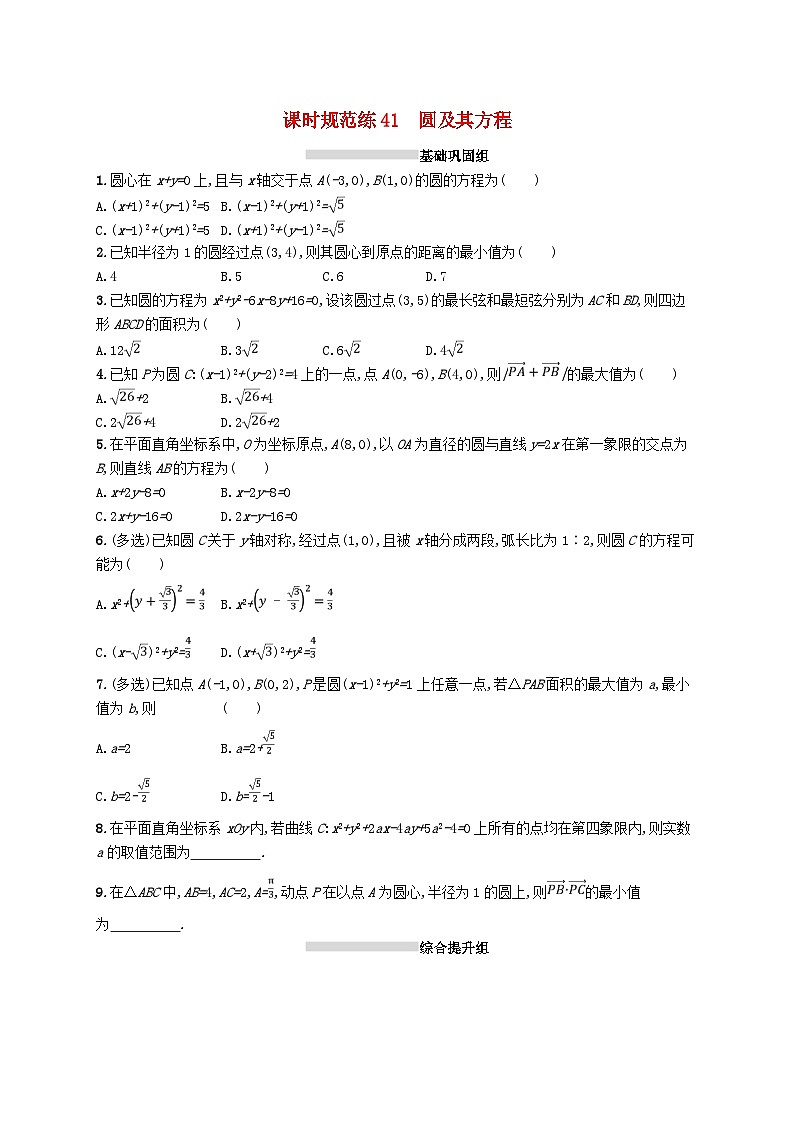 课时规范练41　圆及其方程
基础巩固组
1.圆心在x+y=0上,且与x轴交于点A(-3,0),B(1,0)的圆的方程为(　　)
A.(x+1)²+(y-1)²=5 B.(x-1)²+(y+1)²=√5
C.(x-1)²+(y+1)²=5 D.(x+1)²+(y-1)²=√5
2.已知半径为1的圆经过点(3,4),则其圆心到原点的距离的最小值为(　　)
A.4 B.5 C.6 D.7
3.已知圆的方程为x²+y²-6x-8y+16=0,设该圆过点(3,5)的最长弦和最短弦分别为AC和BD,则四边
形ABCD的面积为(　　)
A.12√2 B.3√2 C.6√2 D.4√2
4.已知P为圆C:(x-1)²+(y-2)²=4上的一点,点A(0,-6),B(4,0),则|PA→+PB→|的最大值为(　　)
A.√26+2 B.√26+4
C.2√26+4 D.2√26+2
5.在平面直角坐标系中,O为坐标原点,A(8,0),以OA为直径的圆与直线y=2x在第一象限的交点为
B,则直线AB的方程为(　　)
A.x+2y-8=0 B.x-2y-8=0
C.2x+y-16=0 D.2x-y-16=0
6.(多选)已知圆C关于y轴对称,经过点(1,0),且被x轴分成两段,弧长比为1∶2,则圆C的方程可
能为(　　)
A.x²+(y+√3/3)²=4/3 B.x²+(y-√3/3)²=4/3
C.(x-√3)²+y²=4/3 D.(x+√3)²+y²=4/3
7.(多选)已知点A(-1,0),B(0,2),P是圆(x-1)²+y²=1上任意一点,若△PAB面积的最大值为a,最小
值为b,则　　(　　)
A.a=2 B.a=2+√5/2
C.b=2-√5/2 D.b=√5/2-1
8.在平面直角坐标系xOy内,若曲线C:x²+y²+2ax-4ay+5a²-4=0上所有的点均在第四象限内,则实数
a的取值范围为__________.
9.在△ABC中,AB=4,AC=2,A=π/3,动点P在以点A为圆心,半径为1的圆上,则PB→·PC→的最小值
为__________.
综合提升组